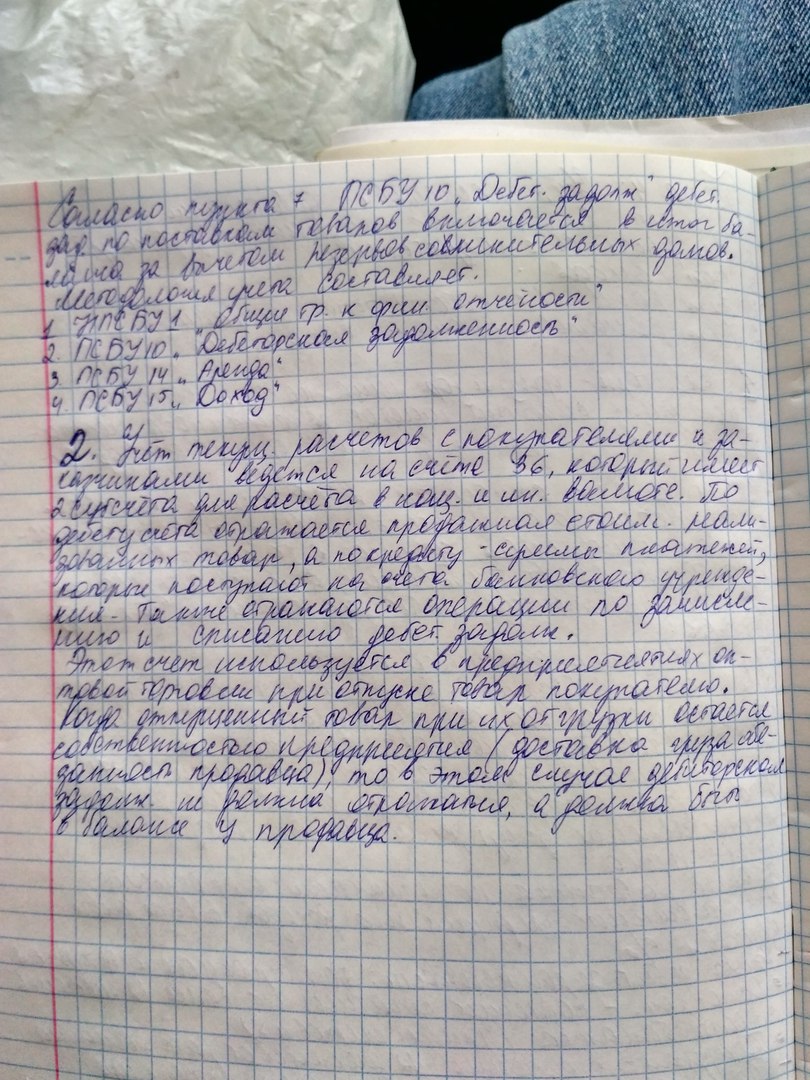 Согласно пункта 7 ПСБУ 10 „Дебет. задолж" дебет.
зад. по поставкам товаров включается в итог ба-
ланса за вычетом резервов сомнительных долгов.
Методология учета составляет.
1. НПСБУ 1 „Общие тр. к фин. отчёности"
2. ПСБУ 10 „Дебеторская задолженность"
3. ПСБУ 14 „Аренда"
4. ПСБУ 15 „Доход"
2. Учёт текущ. расчетов с покупателями и за-
казчиками ведется на счёте 36, который имеет
2 субсчёта для расчёта в нац. и ин. валюте. По
дебету счёта отражается продажная стоим. реали-
зованных товар, а по кредиту - суммы платежей,
которые поступают на счета банковского учрежде-
ния. Также отражаются операции по зачисле-
нию и списанию дебет. задолж.
Этот счет используется в предприятиях оп-
товой торговли при отпуске товар покупателю.
Когда отпущенный товар при их отгрузки остается
собственностью предприятия (доставка груза обя-
занность продавца), то в этом случае дебиторская
задолж. не должна отражаться, а должна быть
в балансе у продавца.